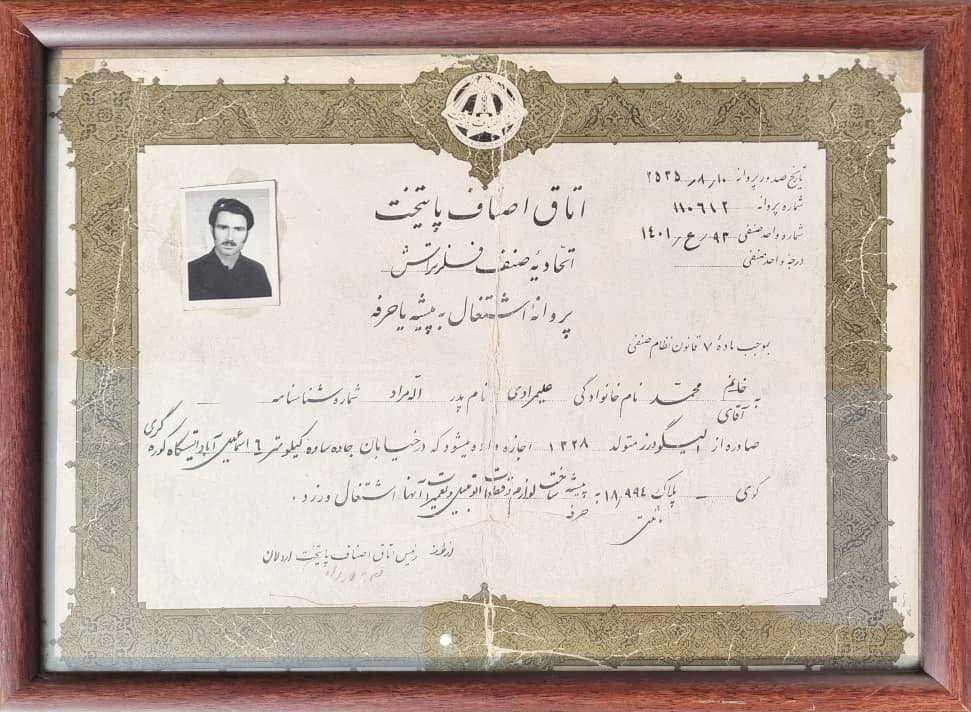 تاریخ صدور پروانه ۲۵۳۵/۸/۱۰
شماره پروانه ۱۱۰۶۱۲
شماره واحد صنفی ۹۳/ع/۱۴۰۱
درجه واحد صنفی
اتاق اصناف پایتخت
اتحادیهٔ صنف فلزتراش
پروانهٔ اشتغال به پیشه یا حرفه
بموجب مادهٔ ۷ قانون نظام صنفی
به خانم آقای محمد نام خانوادگی علیمرادی نام پدر اله مراد شماره شناسنامه
صادره از الیگودرز متولد ۱۳۲۸ اجازه داده میشود که در خیابان جاده ساوه کیلومتر ۶ اسماعیل آباد ایستگاه کوره گری
کوی پلاک ۱۸,۹۹۴ به پیشه حرفه ساخت لوازم و قطعات اتومبیل و تعمیرات آنها اشتغال ورزد.
از طرف رئیس اتاق اصناف پایتخت اردلان